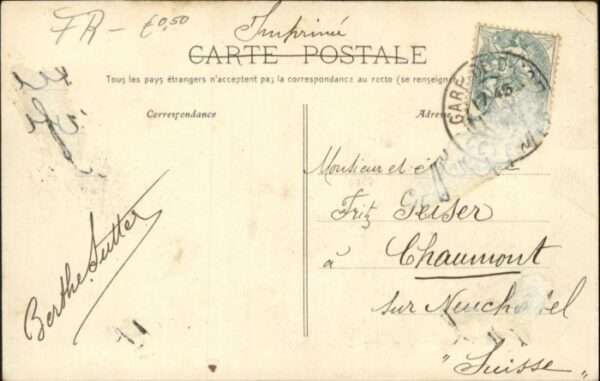 FR - €0,50
Imprimé
CARTE POSTALE
Tous les pays étrangers n'acceptent pas la correspondance au recto (se renseigner
Correspondance
Adresse
GARE
17 45
Monsieur et
Fritz Geiser
à
Chaumont
sur Neuchâtel
"Suisse"
Berthe Sutter